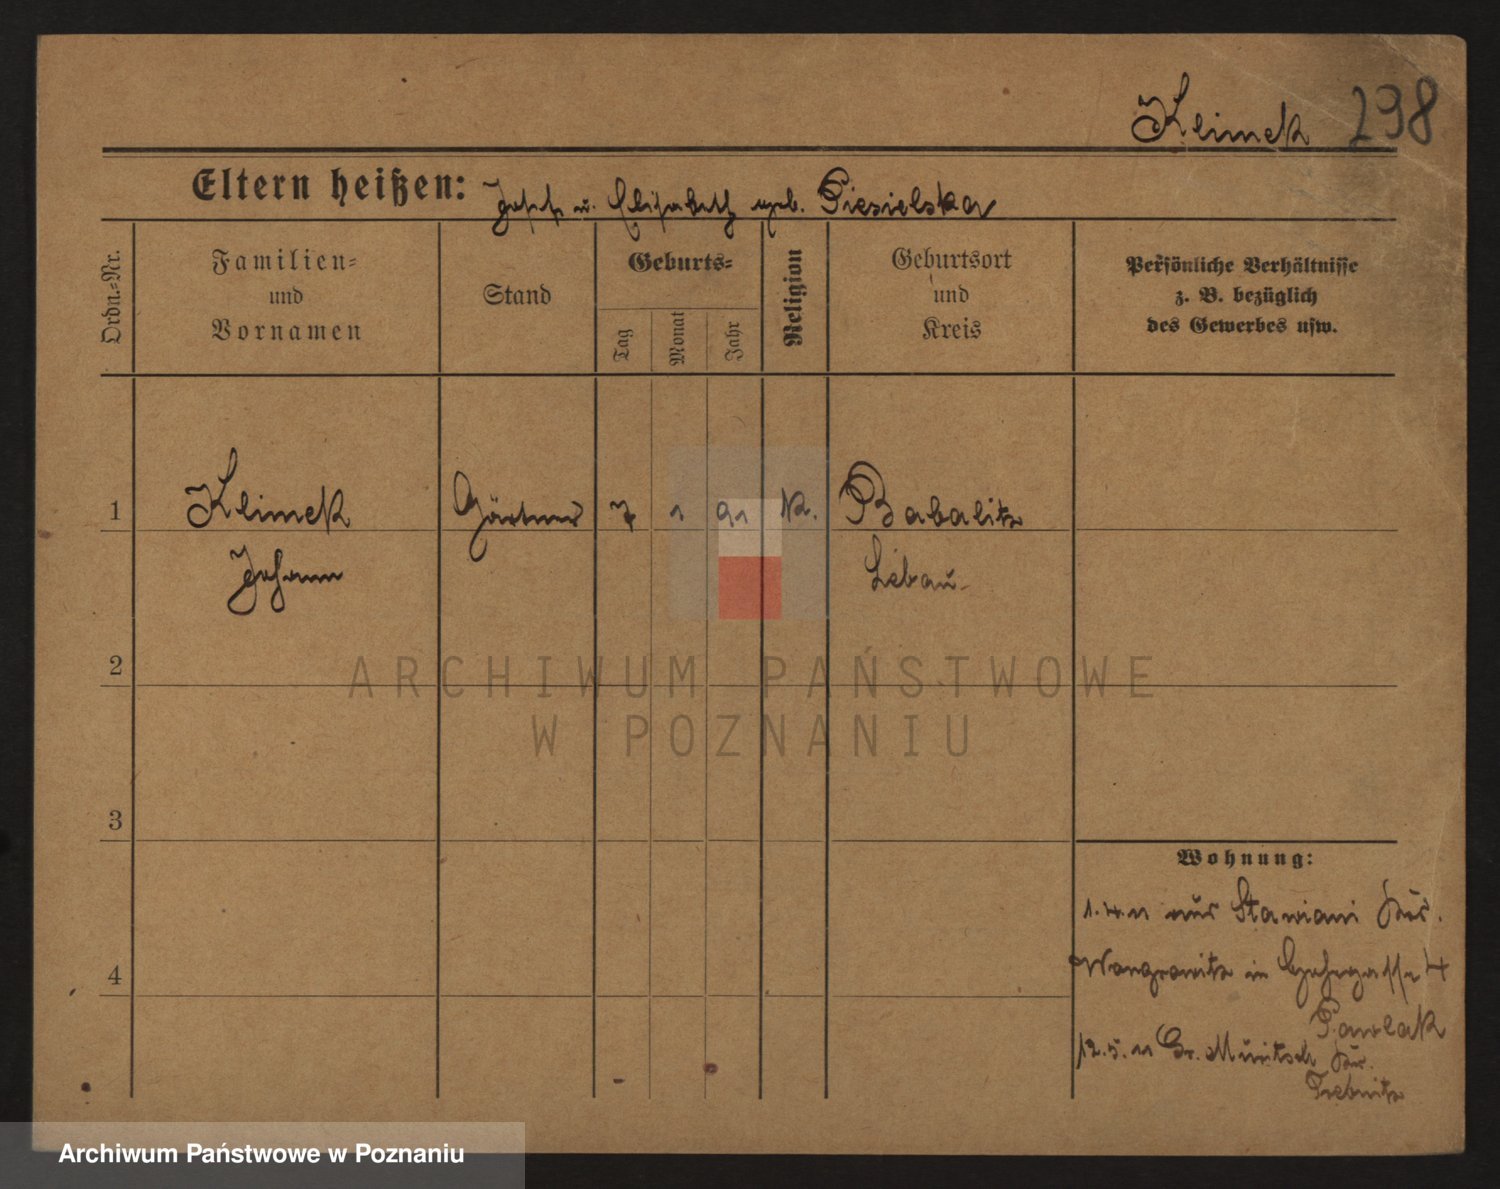 Klimek 298
Eltern heißen: Josef u. Elisabeth geb. Piesielska
Ordn.-Nr.
Familien-
und
Vornamen
Stand
Geburts-
Tag
Monat
Jahr
Religion
Geburtsort
und
Kreis
Persönliche Verhältnisse
z. B. bezüglich
des Gewerbes usw.
1 Klimek Gärtner 7 1 91 K. Babalitz
Johann Löbau
2
3
4
Wohnung:
1.4.11 aus Stawiani Kr.
Wongrowitz in 4
Pawlak
12.5.11 Gr. Muritsch Kr.
Trebnitz
ARCHIWUM PAŃSTWOWE
W POZNANIU
Archiwum Państwowe w Poznaniu